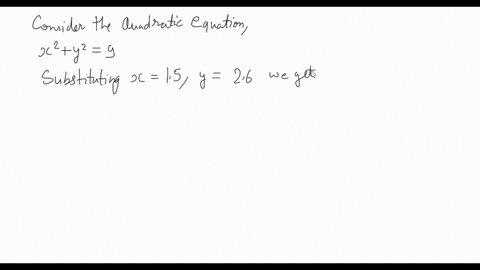 Consider the Quadratic equation,
x² + y² = 9
Substituting x = 1.5, y = 2.6 we get